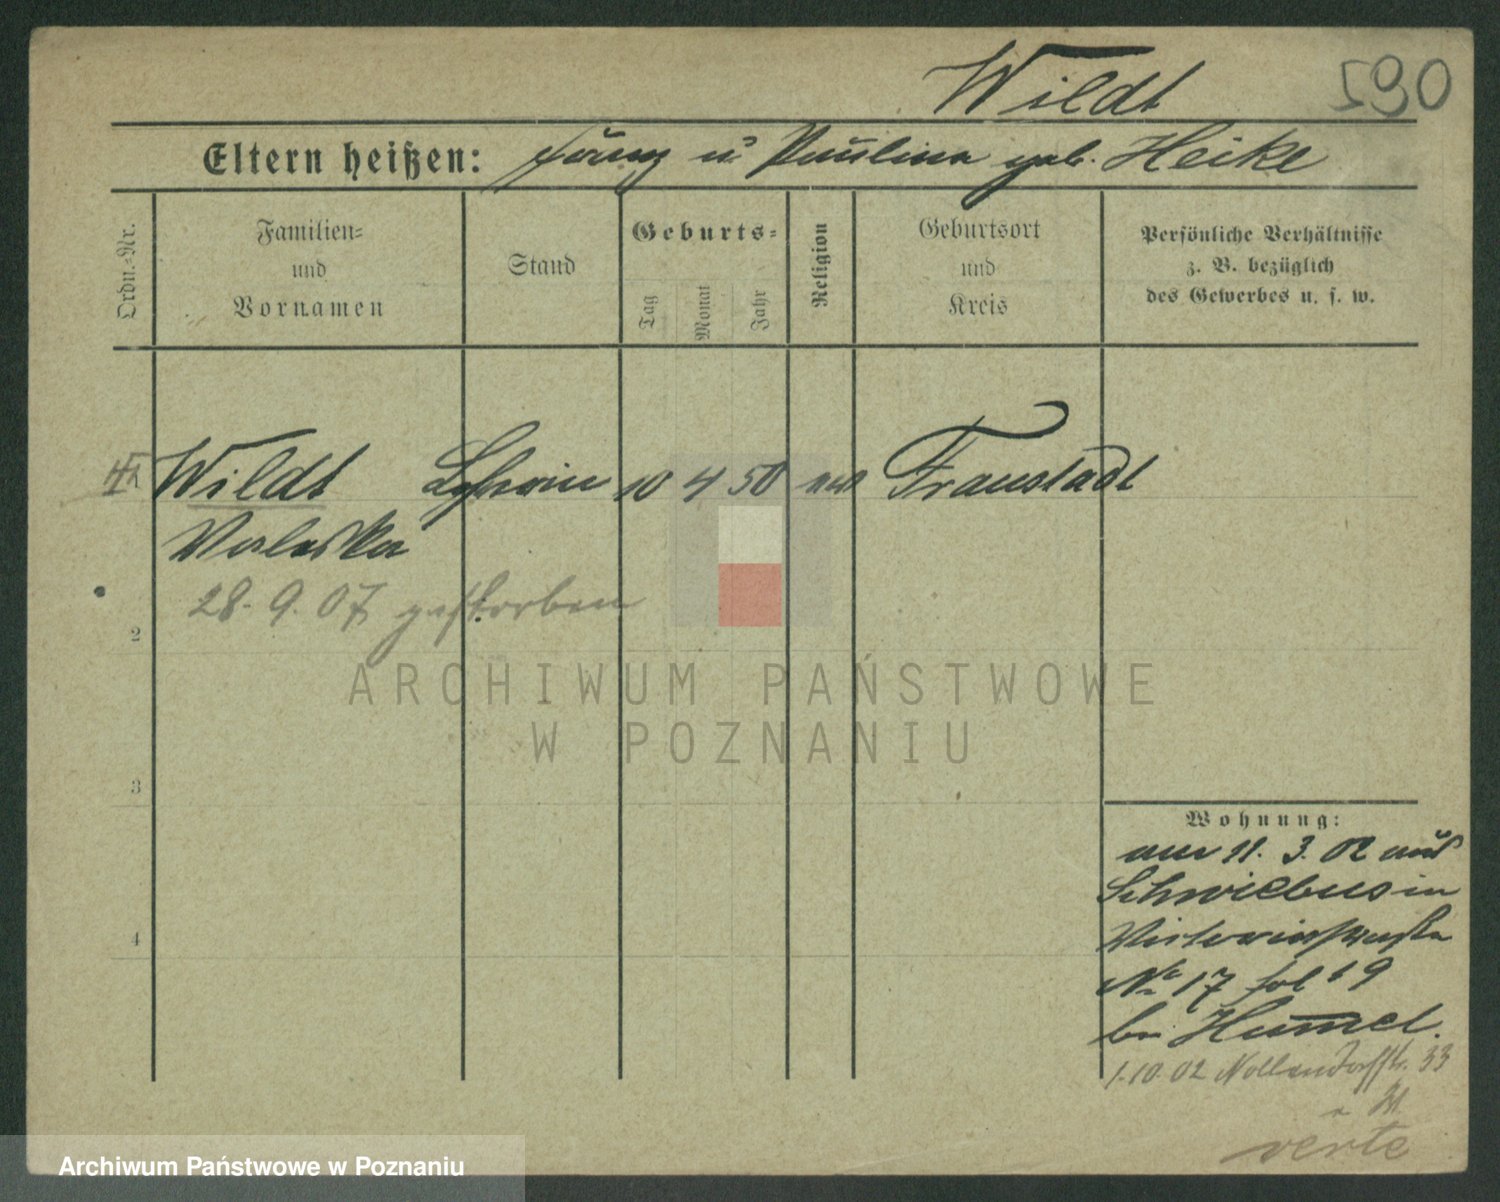 Wildt
590
Eltern heißen: Franz u. Paulina geb. Heike
Ordn.-Nr.
Familien-
und
Vornamen
Stand
Geburts-
Tag
Monat
Jahr
Religion
Geburtsort
und
Kreis
Persönliche Verhältnisse
z. B. bezüglich
des Gewerbes u. s. w.
Wildt 10 4 50 Fraustadt
Valeska
28. 9. 07 gestorben
2
ARCHIWUM PAŃSTWOWE
W POZNANIU
3
4
Wohnung:
am 11. 3. 02 aus
Schwiebus in
Victoriastraße
No 17
bei Hummel.
1.10.02 Nollendorfstr. 33
verte
Archiwum Państwowe w Poznaniu